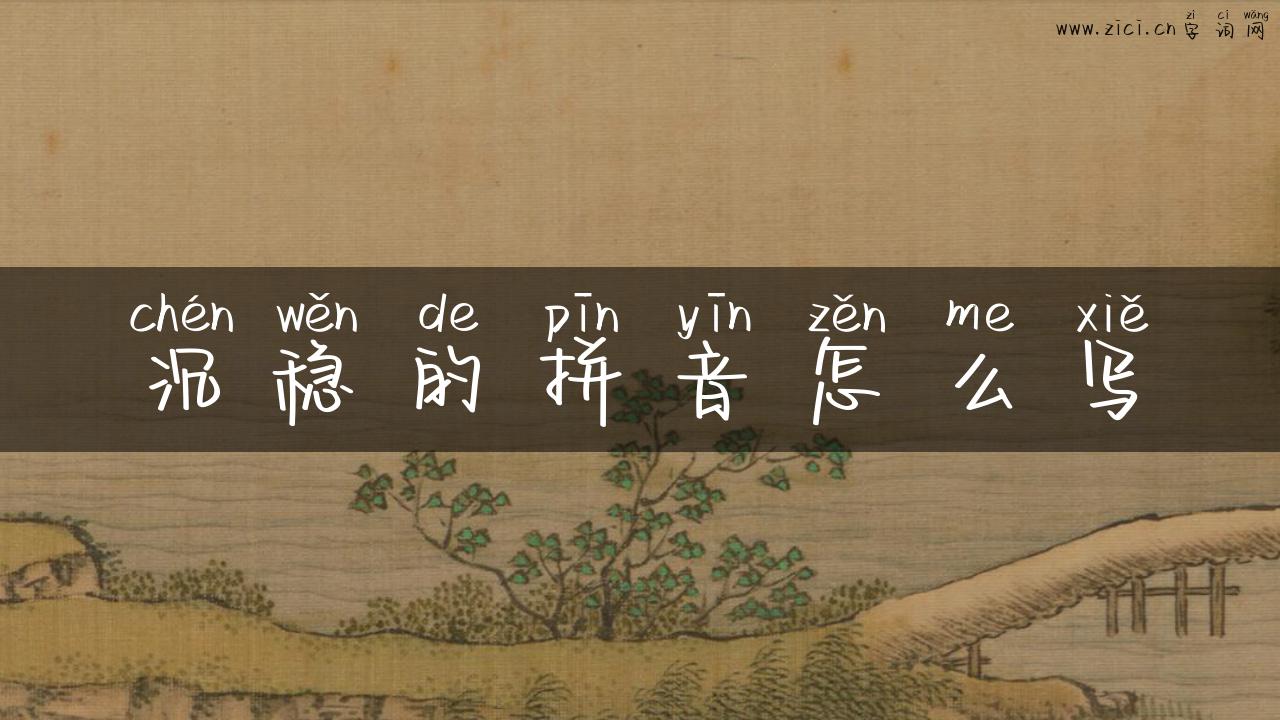 zì cí wǎng
www.zici.cn 字词网
chén wěn de pīn yīn zěn me xiě
沉稳的拼音怎么写